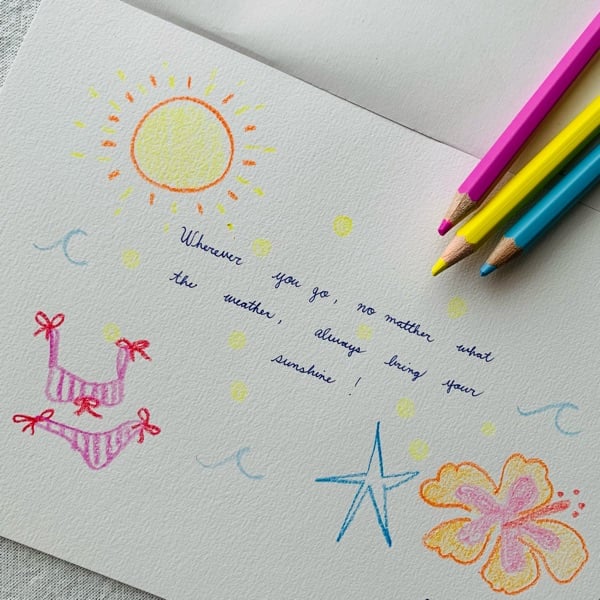 Wherever you go, no matther what
the weather, always bring your
sunshine !